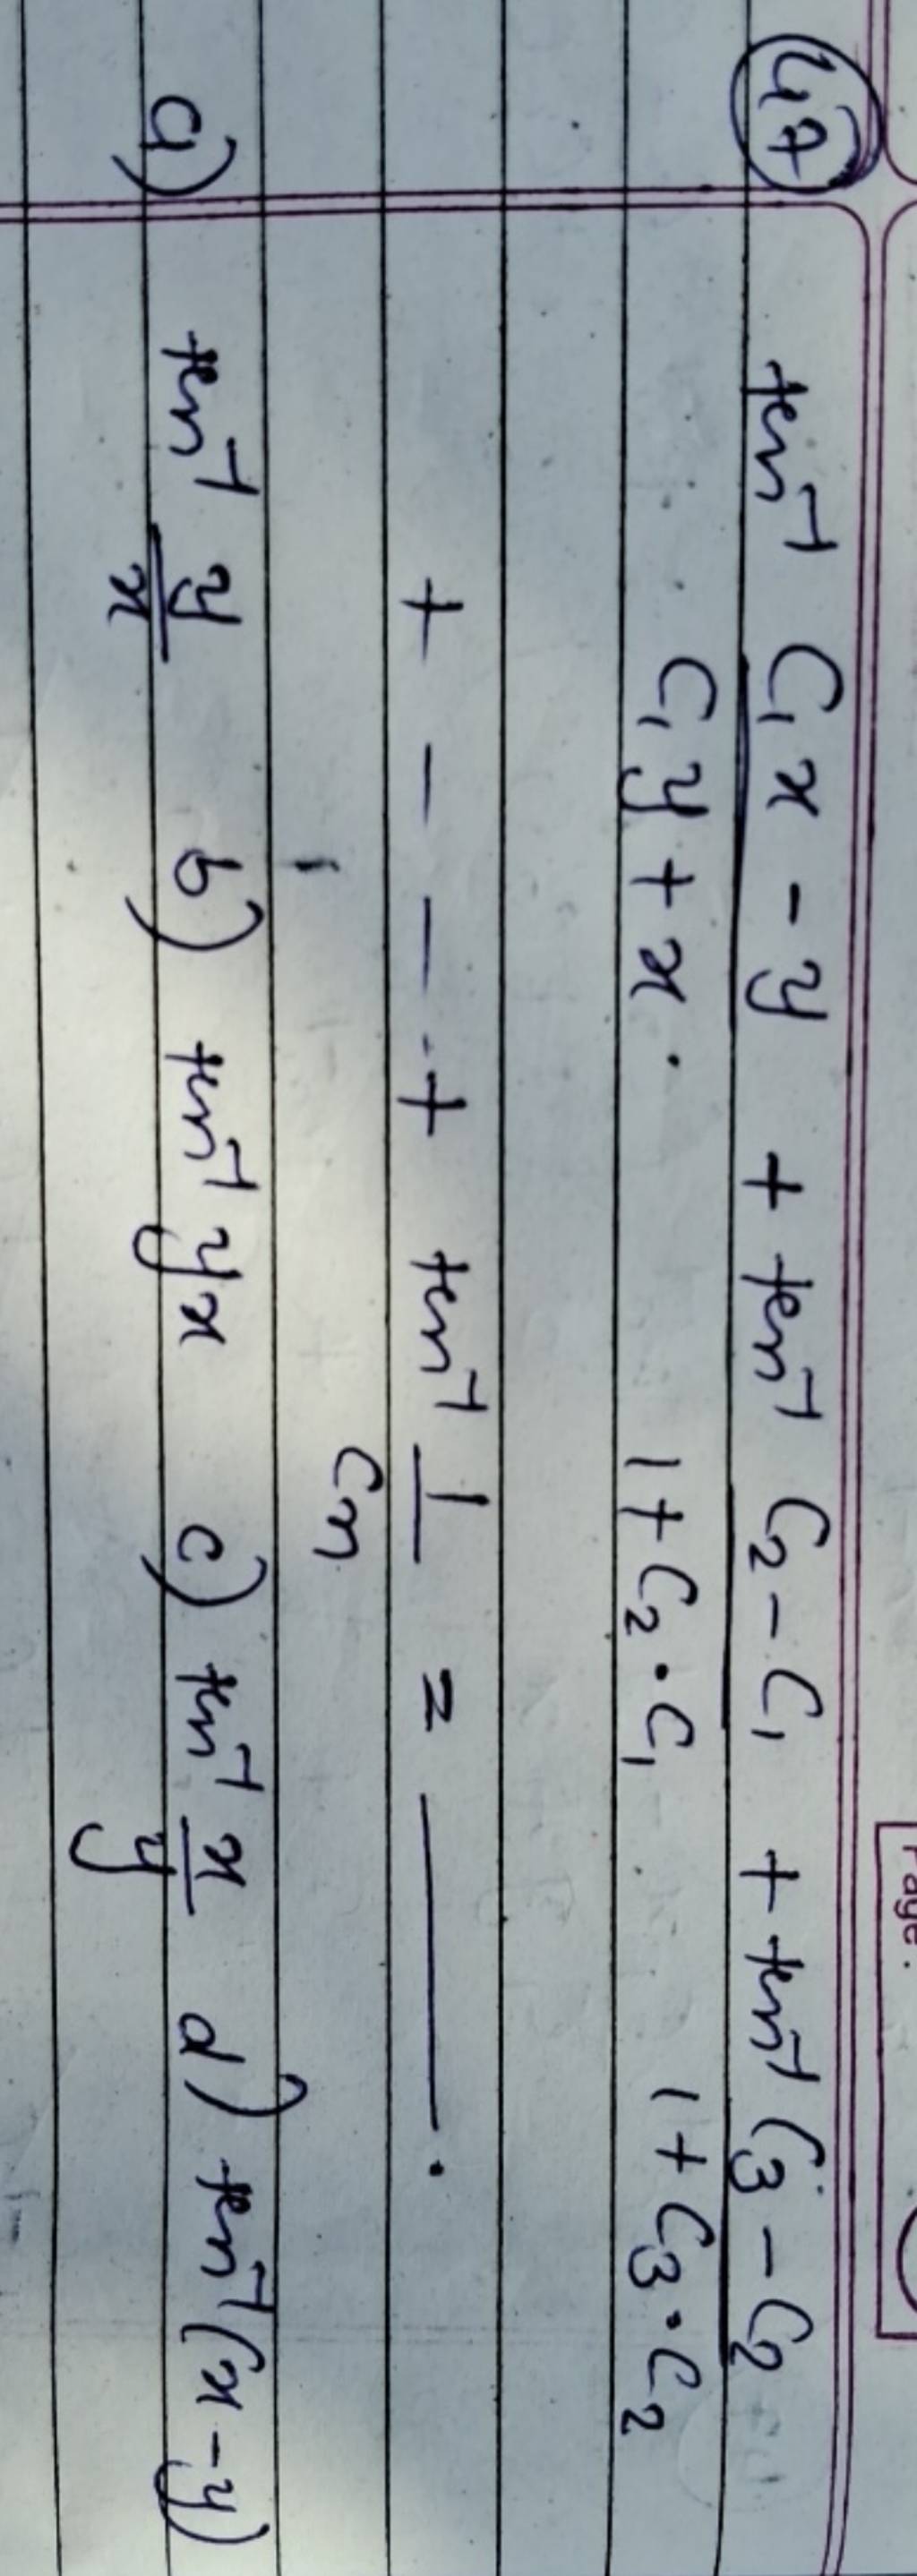 47 tan⁻¹ (C₁x - y)/(C₁y + x) + tan⁻¹ (C₂ - C₁)/(1 + C₂·C₁) + tan⁻¹ (C₃ - C₂)/(1 + C₃·C₂)
+ - - - + tan⁻¹ 1/Cn = ———.
a) tan⁻¹ y/x b) tan⁻¹ yx c) tan⁻¹ x/y d) tan⁻¹(x-y)
Page: